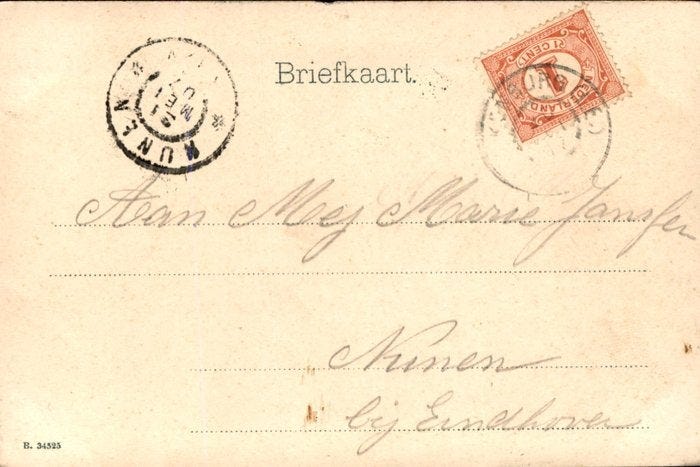 Briefkaart.
NEDERLAND
1 CENT
NUNEN
21
MEI
Aan Mej Marie Janssen
Nunen
bij Eindhoven
B. 34525